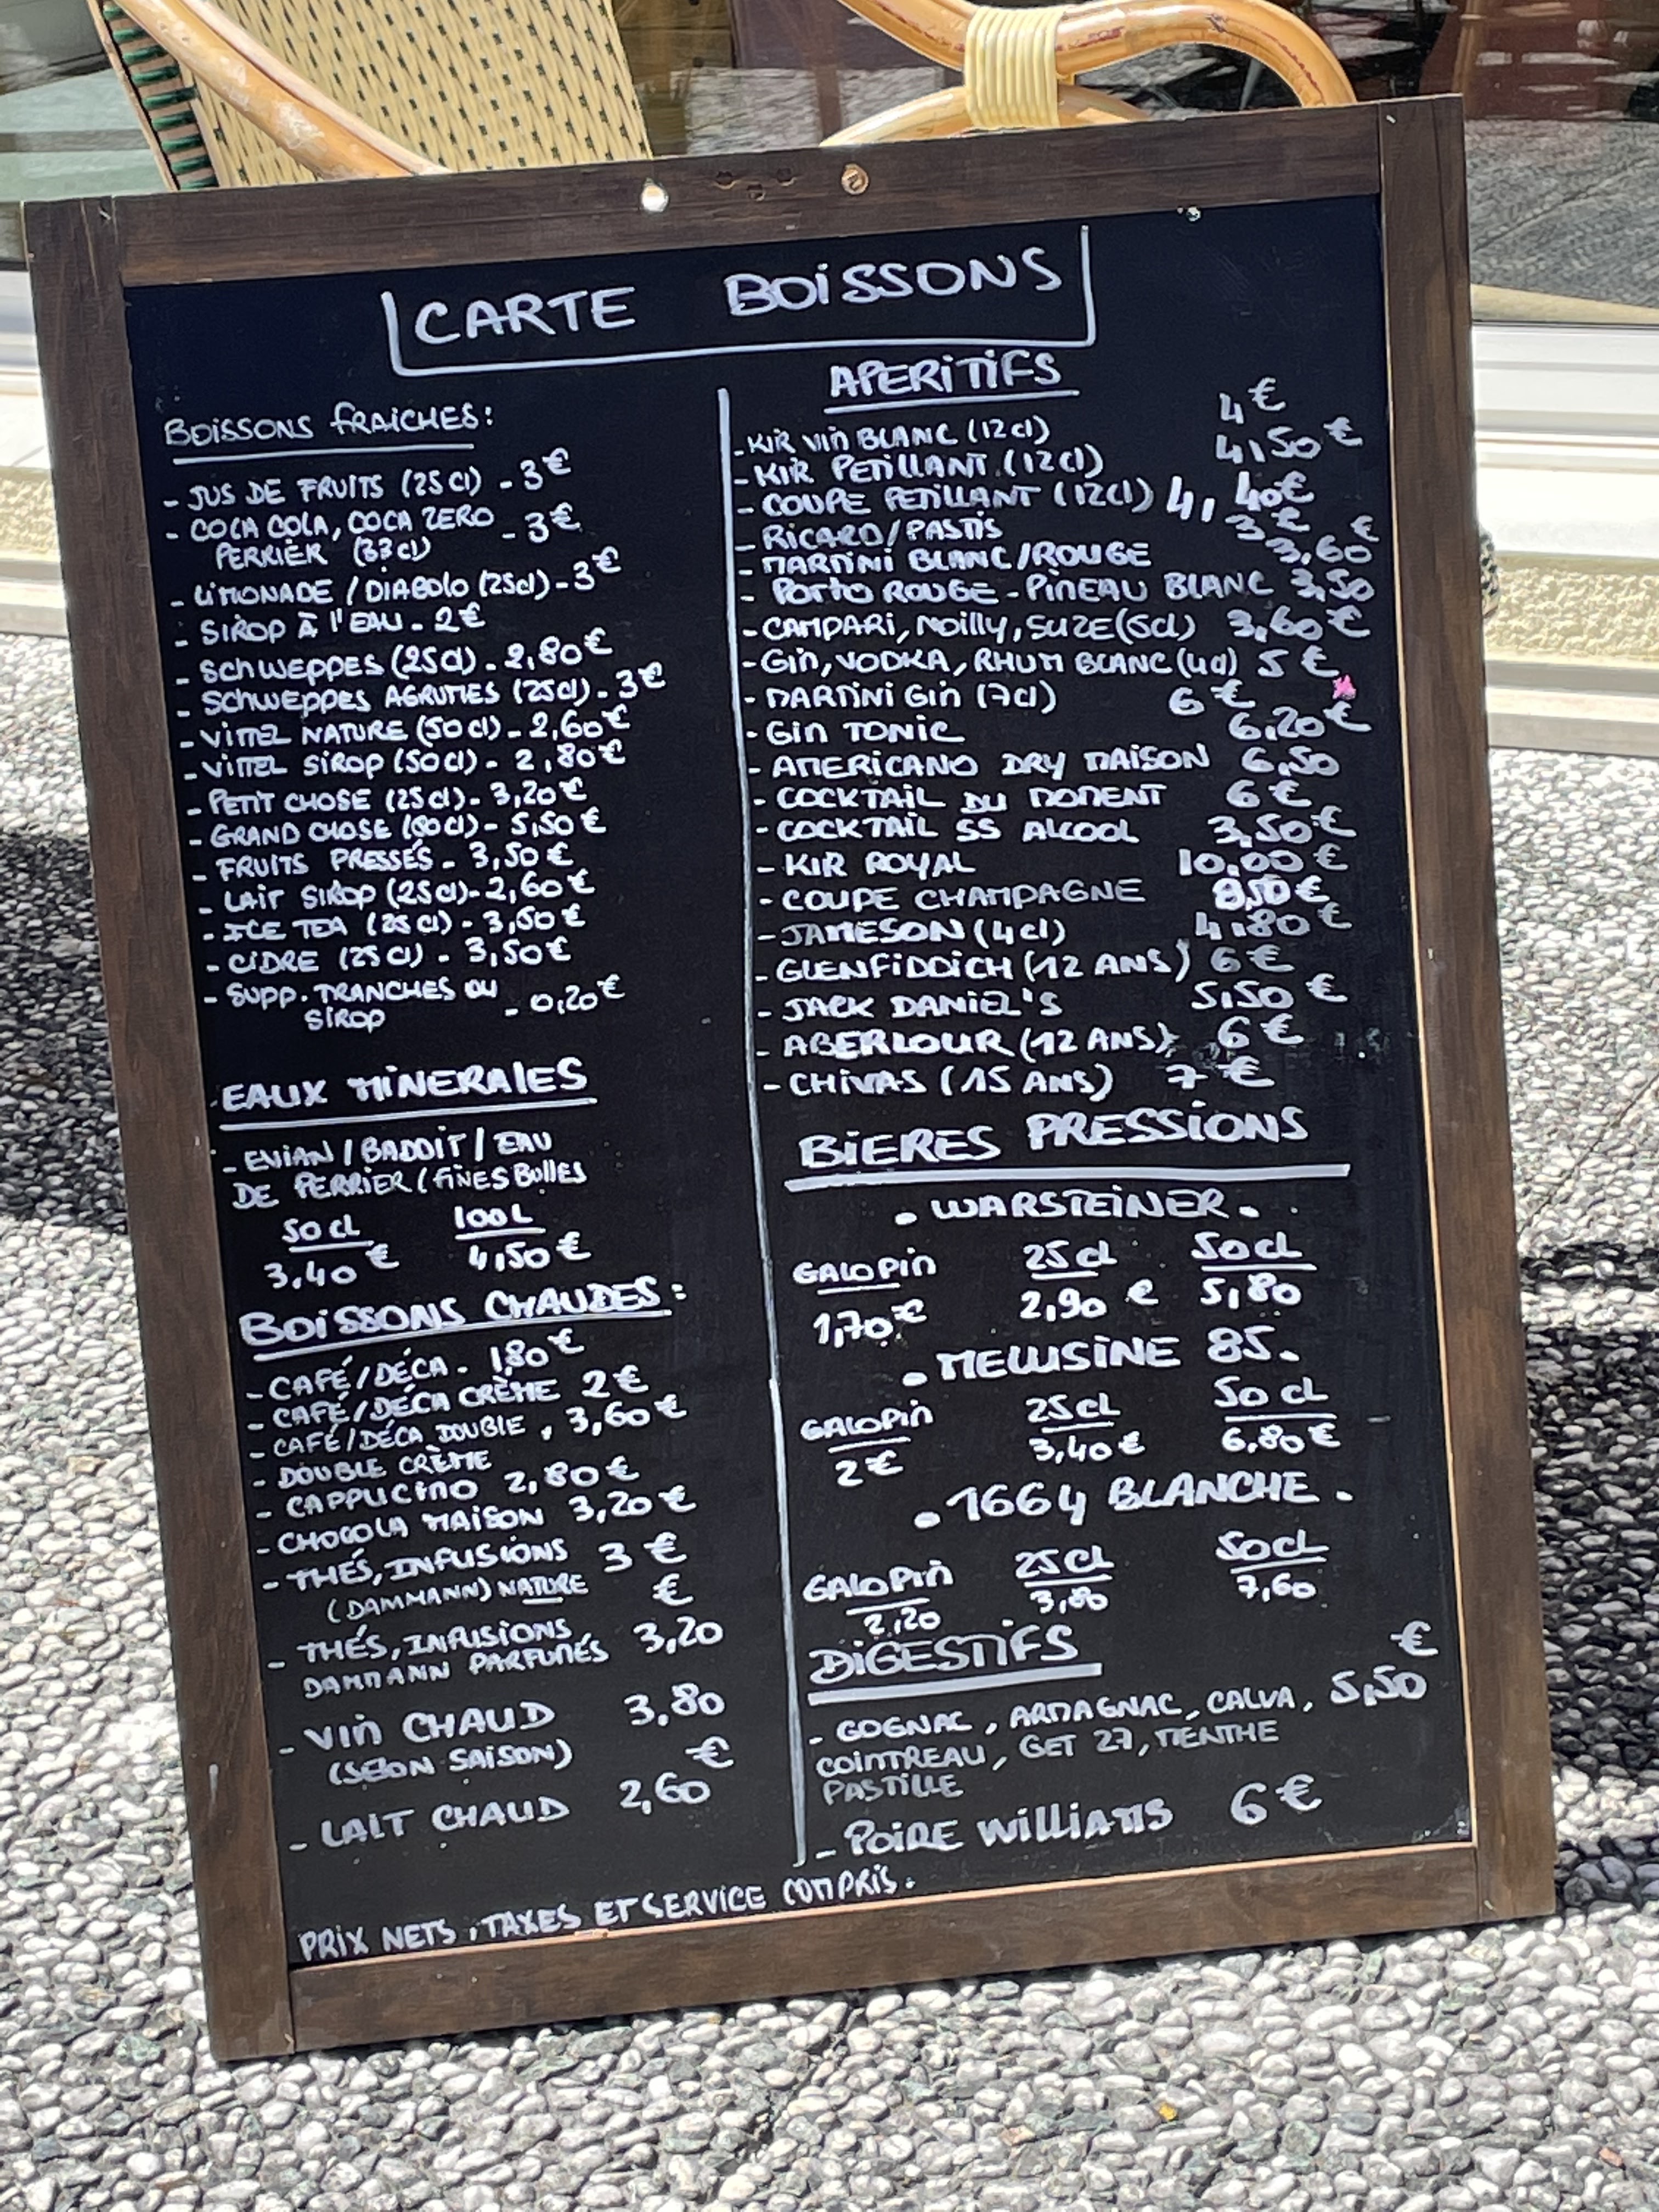 CARTE BOISSONS
BOISSONS FRAICHES:
- JUS DE FRUITS (25Cl) - 3€
- COCA COLA, COCA ZERO - 3€
PERRIER (33cl)
- LIMONADE / DIABOLO (25cl) - 3€
- SIROP À l'EAU - 2€
- SCHWEPPES (25cl) - 2,80€
- SCHWEPPES AGRUMES (25cl) - 3€
- VITTEL NATURE (50cl) - 2,60€
- VITTEL SIROP (50cl) - 2,80€
- PETIT CHOSE (25cl) - 3,20€
- GRAND CHOSE (50cl) - 5,50€
- FRUITS PRESSÉS - 3,50€
- LAIT SIROP (25cl) - 2,60€
- ICE TEA (25cl) - 3,50€
- CIDRE (25cl) - 3,50€
- SUPP. TRANCHES OU - 0,20€
SIROP
EAUX MINERALES
- EVIAN / BADOIT / EAU
DE PERRIER (FINES BULLES
50 cl 100 L
3,40 € 4,50 €
BOISSONS CHAUDES:
- CAFÉ/DÉCA - 1,80€
- CAFÉ/DÉCA CRÈME 2€
- CAFÉ/DÉCA DOUBLE, 3,60€
- DOUBLE CRÈME
- CAPPUCINO 2,80€
- CHOCOLA MAISON 3,20€
- THÉS, INFUSIONS 3 €
(DAMMANN) NATURE
- THÉS, INFUSIONS 3,20 €
DAMMANN PARFUMÉS
- VIN CHAUD 3,80
(SELON SAISON)
- LAIT CHAUD 2,60 €
APERITIFS
- KIR VIN BLANC (12cl) 4€
- KIR PETILLANT (12cl) 4,50€
- COUPE PETILLANT (12cl) 4,40€
- RICARD/PASTIS 3€
- MARTINI BLANC/ROUGE 3,60 €
- PORTO ROUGE - PINEAU BLANC 3,50
- CAMPARI, NOILLY, SUZE (6cl) 3,60€
- GIN, VODKA, RHUM BLANC (4cl) 5€
- MARTINI GIN (7cl) 6€
- GIN TONIC 6,20€
- AMERICANO DRY MAISON 6,50
- COCKTAIL DU MOMENT 6€
- COCKTAIL SS ALCOOL 3,50€
- KIR ROYAL 10,00€
- COUPE CHAMPAGNE 8,50€
- JAMESON (4cl) 4,80€
- GLENFIDDICH (12 ANS) 6€
- JACK DANIEL'S 5,50 €
- ABERLOUR (12 ANS) 6€
- CHIVAS (15 ANS) 7€
BIERES PRESSIONS
. WARSTEINER .
GALOPIN 25cl 50cl
1,70€ 2,90 € 5,80
. MELUSINE 85.
GALOPIN 25cl 50 cl
2€ 3,40€ 6,80€
. 1664 BLANCHE .
GALOPIN 25cl 50cl
2,20 3,80 7,60
DIGESTIFS
- COGNAC, ARMAGNAC, CALVA, 5,50 €
COINTREAU, GET 27, MENTHE
PASTILLE
- POIRE WILLIAMS 6€
PRIX NETS, TAXES ET SERVICE COMPRIS.